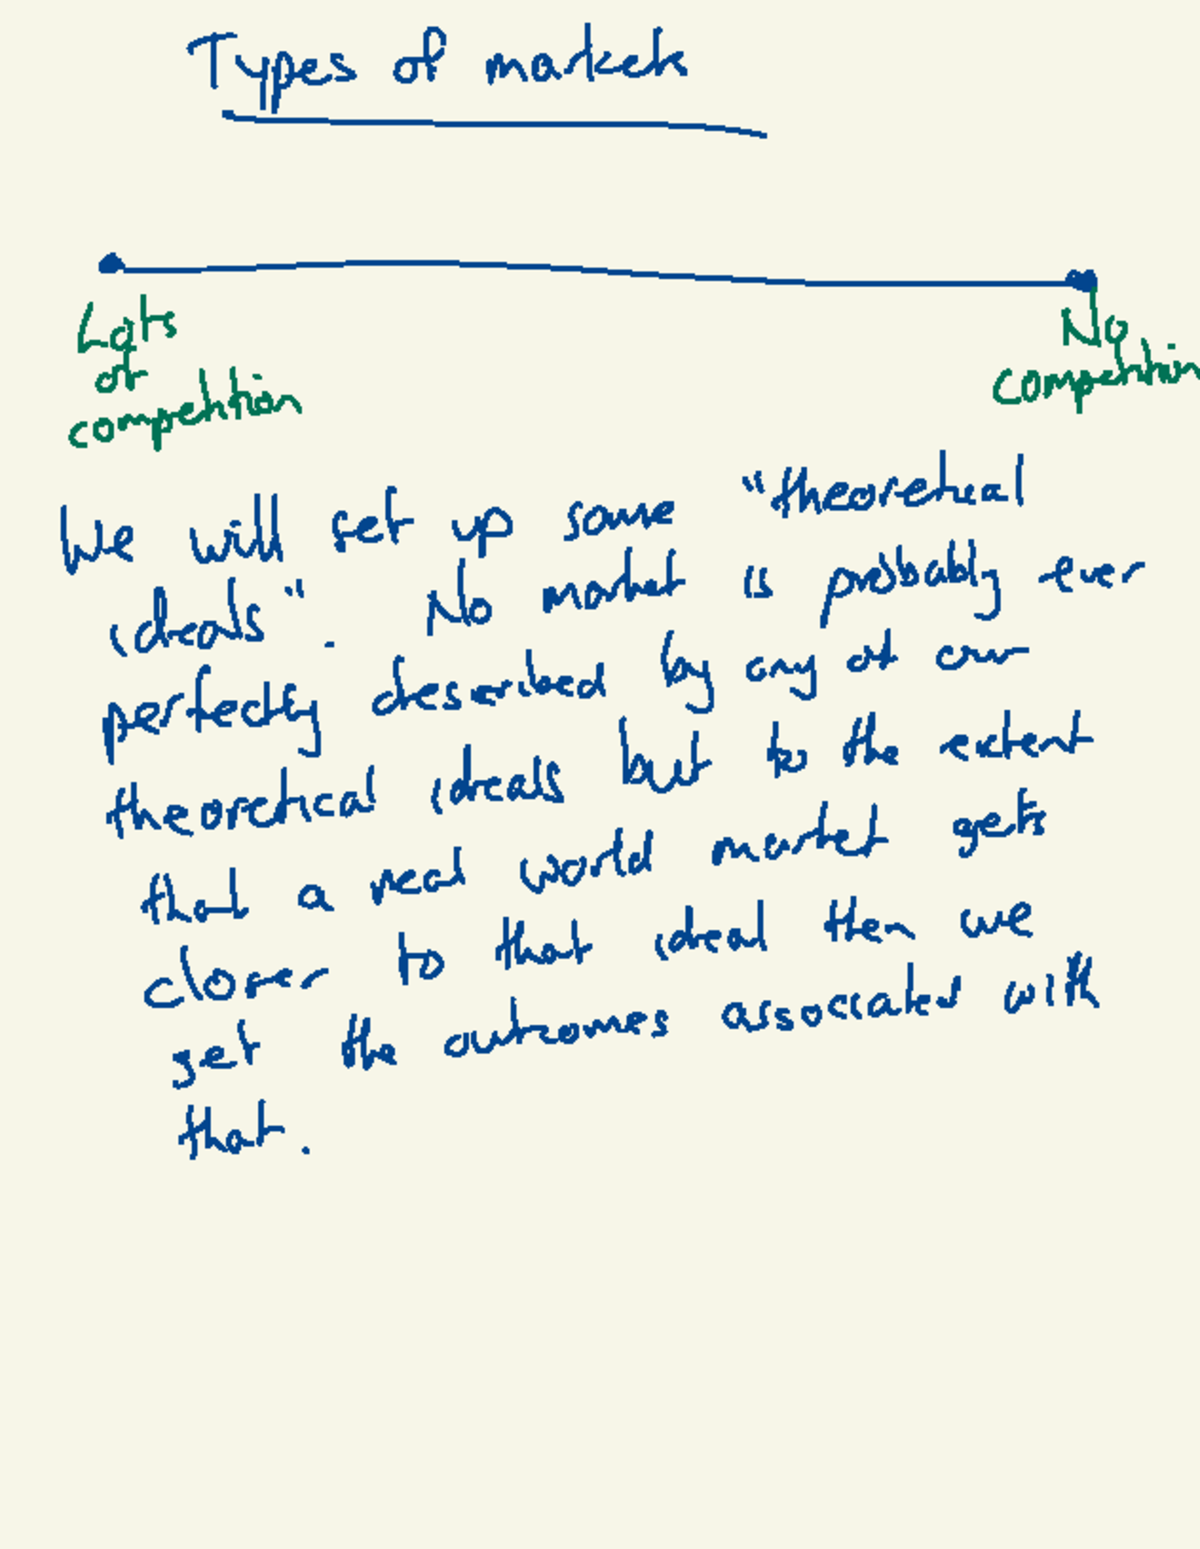 Types of markets
Lots
of
competition
No
competition
We will set up some "theoretical
ideals". No market is probably ever
perfectly described by any of our
theoretical ideals but to the extent
that a real world market gets
closer to that ideal then we
get the outcomes associated with
that.